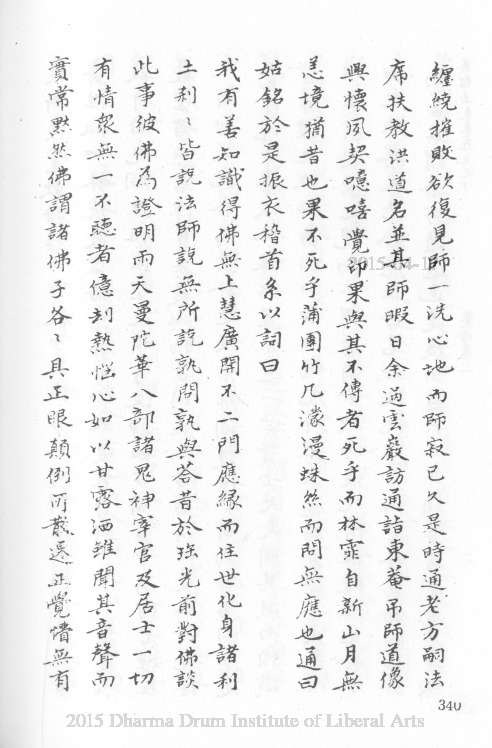 纏繞摧敗欲復見師一洗心地而師寂已久是時通老方嗣法
席扶教洪道名並其師暇日余過雲巖訪通詣東菴吊師道像
興懷夙契噫嘻覺印果與其不傳者死乎而林霏自新山月無
恙境猶昔也果不死乎蒲團竹几濛漫蛛絲而問無應也通曰
姑銘於是振衣稽首系以詞曰
我有善知識得佛無上慧廣開不二門應緣而住世化身諸利
土利〻皆說法師說無所說孰問孰與答昔於珠光前對佛談
此事彼佛為證明雨天曼陀華八部諸鬼神宰官及居士一切
有情眾無一不聽者億劫熱惱心如以甘露洒雖聞其音聲而
實常默然佛謂諸佛子各〻具正眼顛倒所散還正覺情無有
340
2015-04-1
2015 Dharma Drum Institute of Liberal Arts